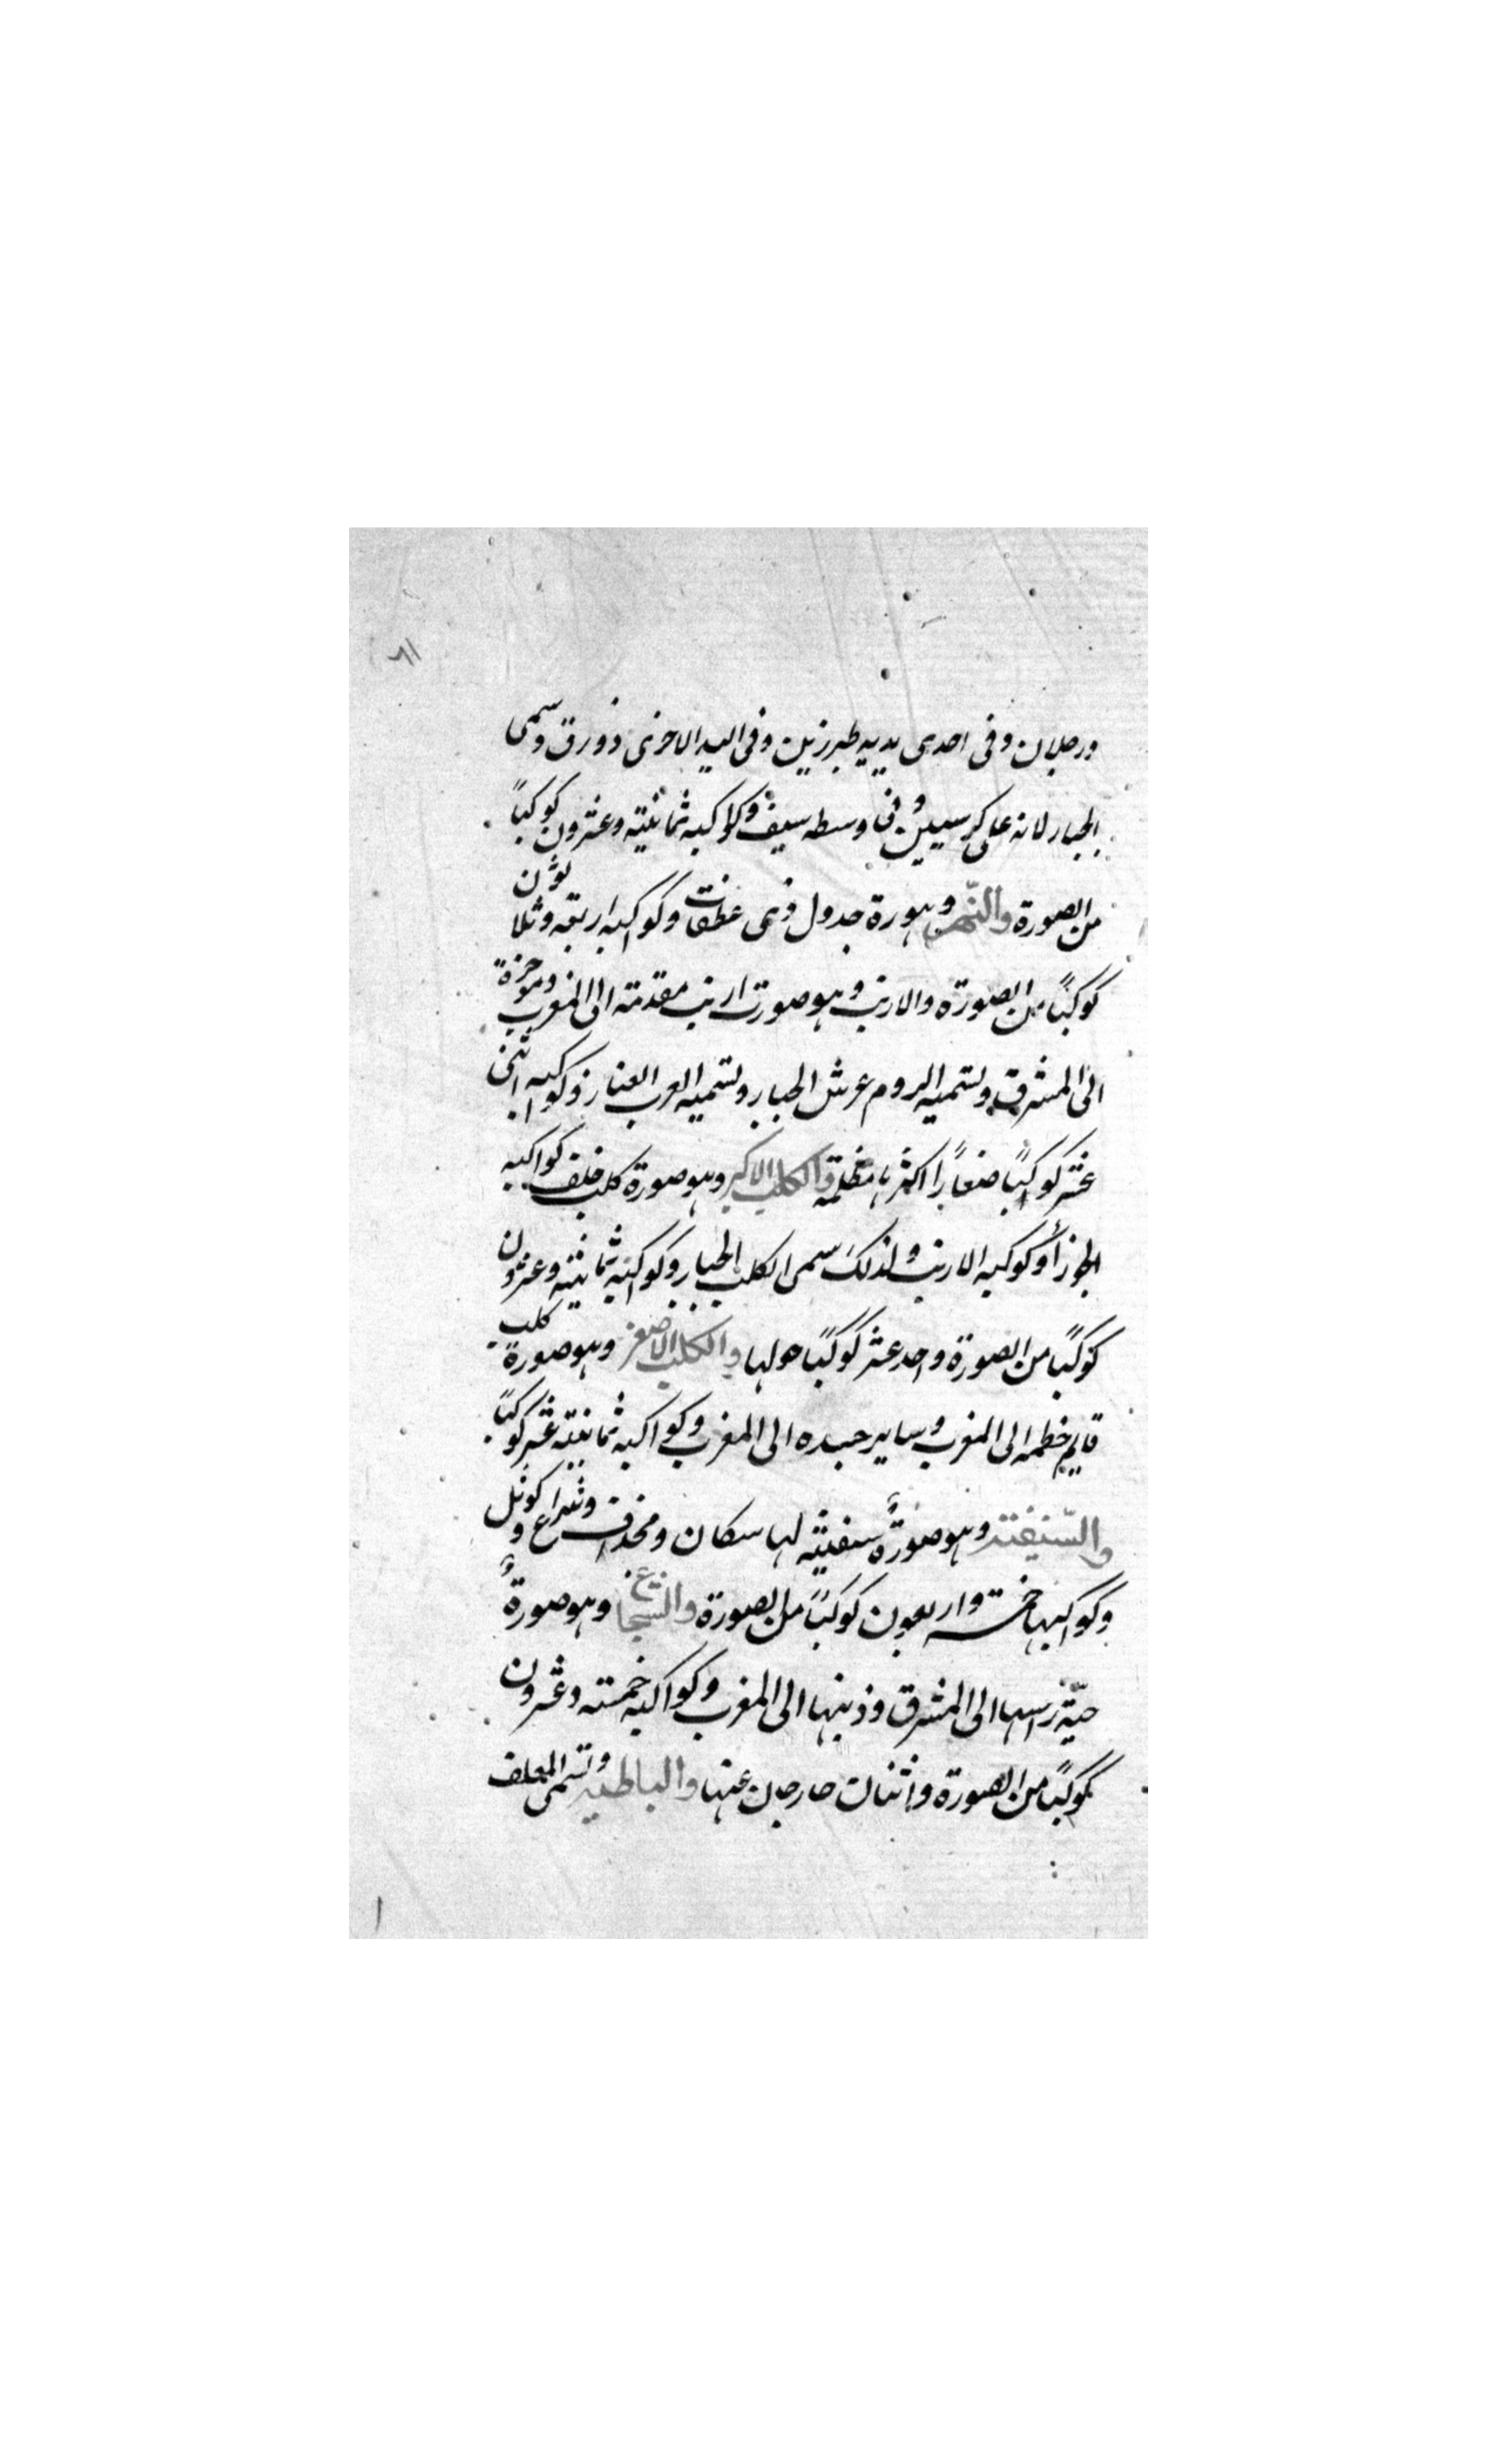 ٨١
ورجلان وفى احدى يديه طبرزين وفى اليد الاخرى ذورق وسمى
الجبار لانه على كرسيين وفى وسطه سيف وكواكبه ثمانية وعشرون كوكباً
من الصورة والنّهر وهورة جدول ذى عطفات وكواكبه اربعة وثلاثون
كوكباً من الصورة والارنب وهو صورت ارنب مقدمته الى المغرب وموخرة
الى المشرق وتسميه الروم عرش الجبار وتسميه العرب العناز وكواكبه اثنى
عشر كوكباً صغاراً اكثرها مظلمة والكلب الاكبر وهو صورة كلب خلف كواكبه
الجوزاً وكوكبه الارنب ولذلك سمى الكلب الجبار وكواكبه ثمانية وعشرون
كوكباً من الصورة واحد عشر كوكباً حولها والكلب الاصغر وهو صورة كلب
قايم خطمه الى المغرب وساير جسده الى المغرب وكواكبه ثمانية عشر كوكباً
والسّفينة وهو صورةً سفينة لها سكان ومجداف وشراع وكوثل
وكواكبها خمسة واربعون كوكباً من الصورة والشجاع وهو صورةً
حيّة راسها الى المشرق وذنبها الى المغرب وكواكبه خمسة وعشرون
كوكباً من الصورة واثنان خارجان عنها والباطية وتسمى المعلف